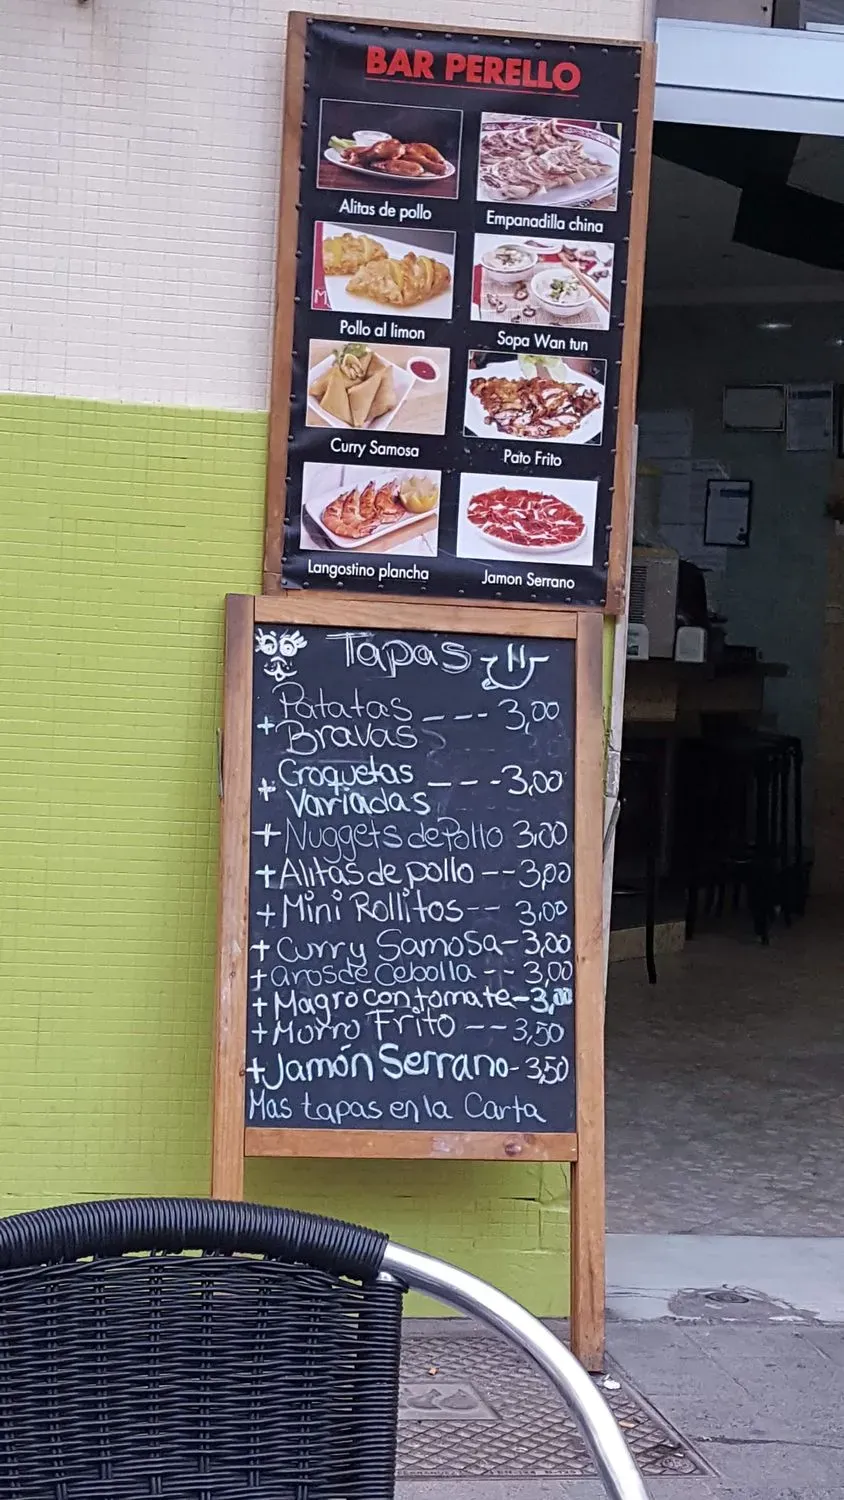 BAR PERELLO
Alitas de pollo
Empanadilla china
Pollo al limon
Sopa Wan tun
Curry Samosa
Pato Frito
Langostino plancha
Jamon Serrano
Tapas
+ Patatas Bravas --- 3,00
+ Croquetas Variadas --- 3,00
+ Nuggets de Pollo 3,00
+ Alitas de pollo -- 3,00
+ Mini Rollitos -- 3,00
+ Curry Samosa - 3,00
+ aros de Cebolla -- 3,00
+ Magro con tomate - 3,00
+ Morro Frito -- 3,50
+ Jamón Serrano - 3,50
Mas tapas en la Carta